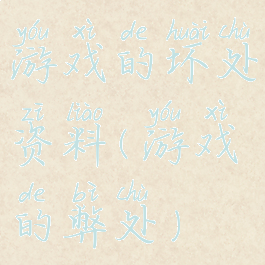 yóu xì de huài chù
游戏的坏处
zī liào yóu xì
资料(游戏
de bì chù
的弊处)